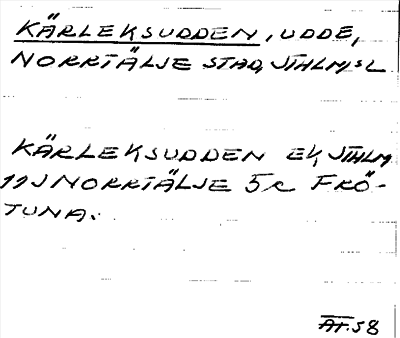 KÄRLEKSUDDEN, UDDE,
NORRTÄLJE STAD, STHLM,S L
KÄRLEKSUDDEN EK, STHLM
11J NORRTÄLJE 5c FRÖ-
TUNA.
AF.58